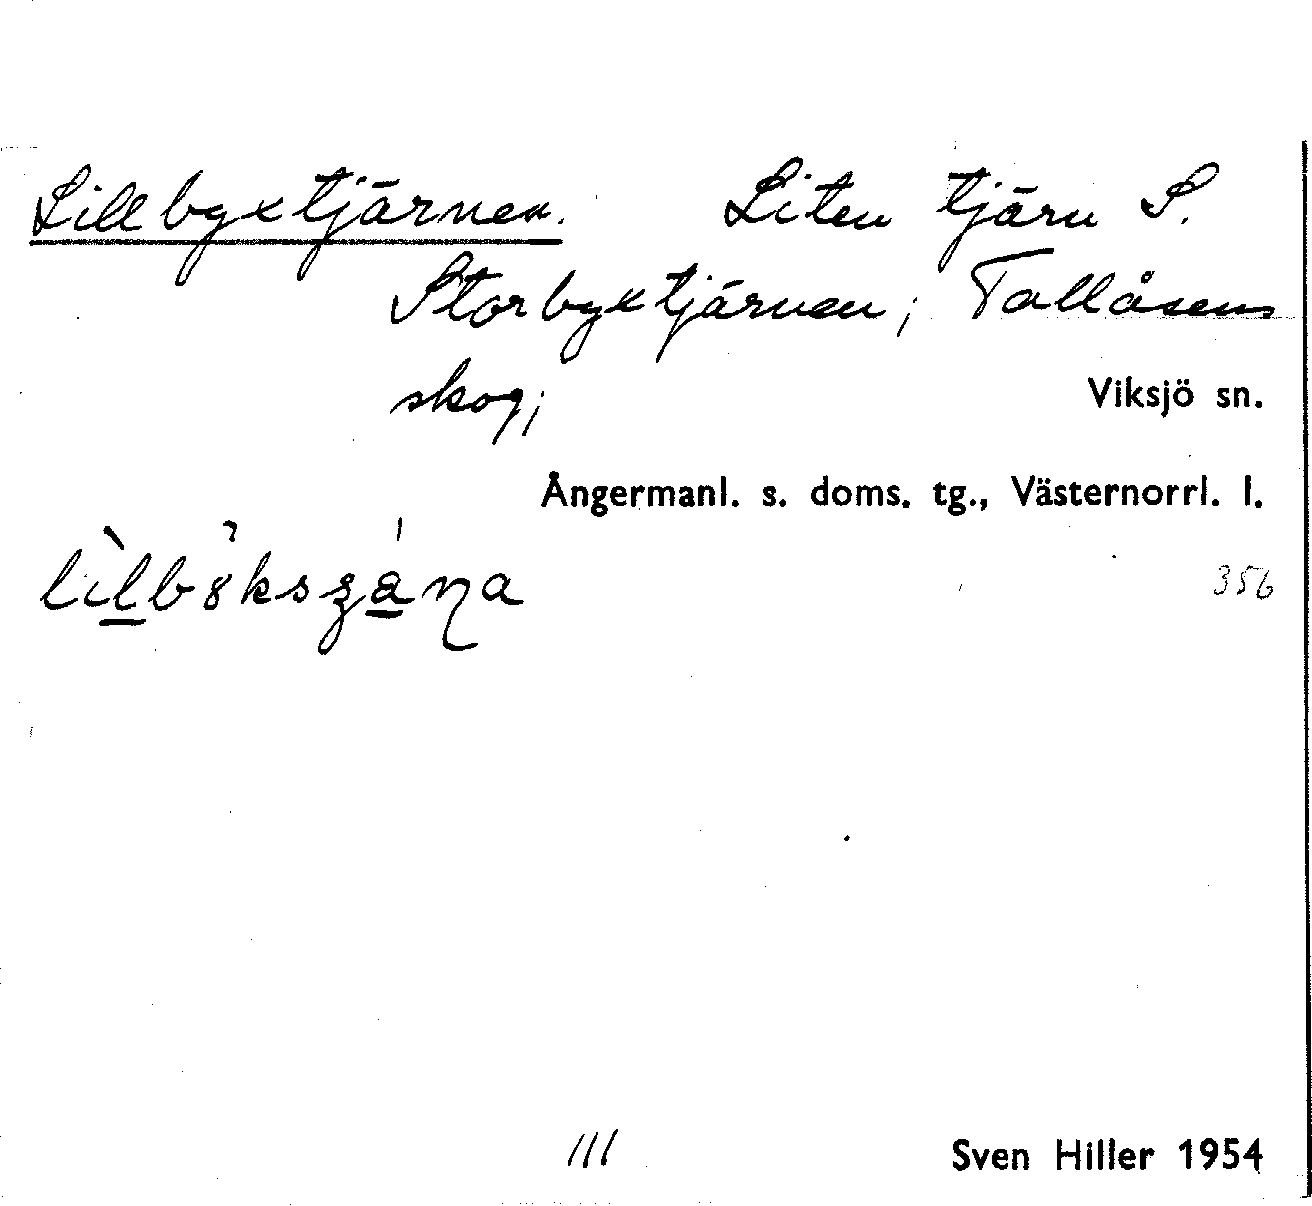 Lillbyxtjärnen. Liten tjärn S.
Storbyxtjärnen; Tallåsens
skog;
Viksjö sn.
Ångermanl. s. doms. tg., Västernorrl. l.
356
111
Sven Hiller 1954